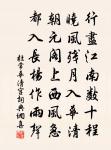 行盡江南數十程
曉風殘月入華清
朝元閣上西風急
都入長楊作雨聲
杜常華清宮詞與網友